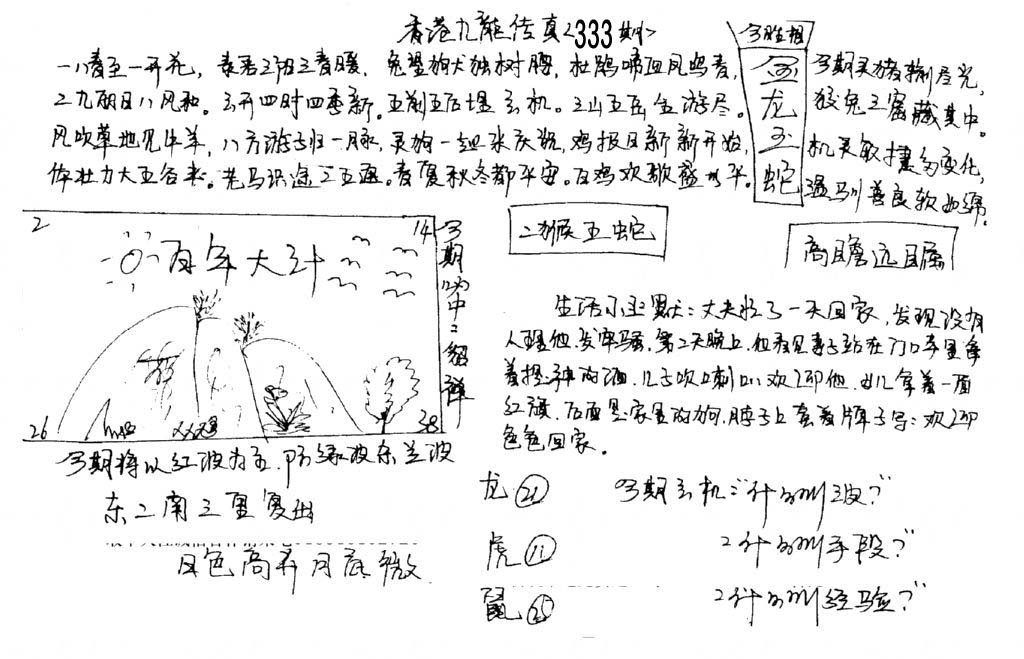 香港九龍传真<333期>
一八春至一开花，春若三阳三春暖，兔望狗犬独树腰，杜鹃啼血凤鸣春，
二九明日八风和。玄开四时四季新，五前五后埋玄机。三山五岳全游尽。
风吹草地见牛羊，八方游子归一脉，灵狗一起来庆祝，鸡报日新新开始，
体壮力大五谷来。老马识途二五通。春夏秋冬都平安。百鸡欢歌盛世平。
今期胜相
金龙玉蛇
今期灵猪输尽光，
狡兔三窟藏其中。
机灵敏捷多变化，
温驯善良软如绵。
二猴五蛇
高瞻远瞩
2
14
百年大计
26
38
今期
中二
今期将以红波为主，防绿波东兰波
东二南三里复出
月色高弄月底微
生活小幽默：丈夫忙了一天回家，发现没有
人理他，发牢骚，第二天晚上，他看见妻子站在门口手里拿
着提神的酒，儿子吹喇叭欢迎他，女儿拿着一面
红旗，后面是家里的狗，脖子上套着牌子写：欢迎
色色回家。
龙 21
虎 11
鼠 25
今期玄机："什么叫三波？"
2什么叫手段？"
2什么叫经验？"